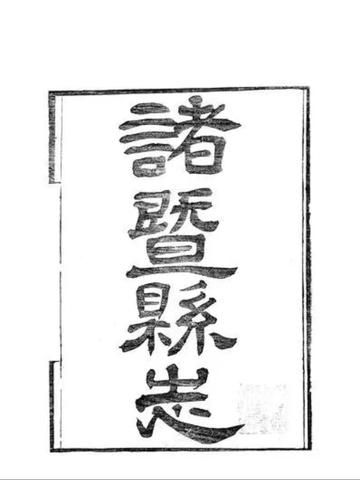 諸暨縣志